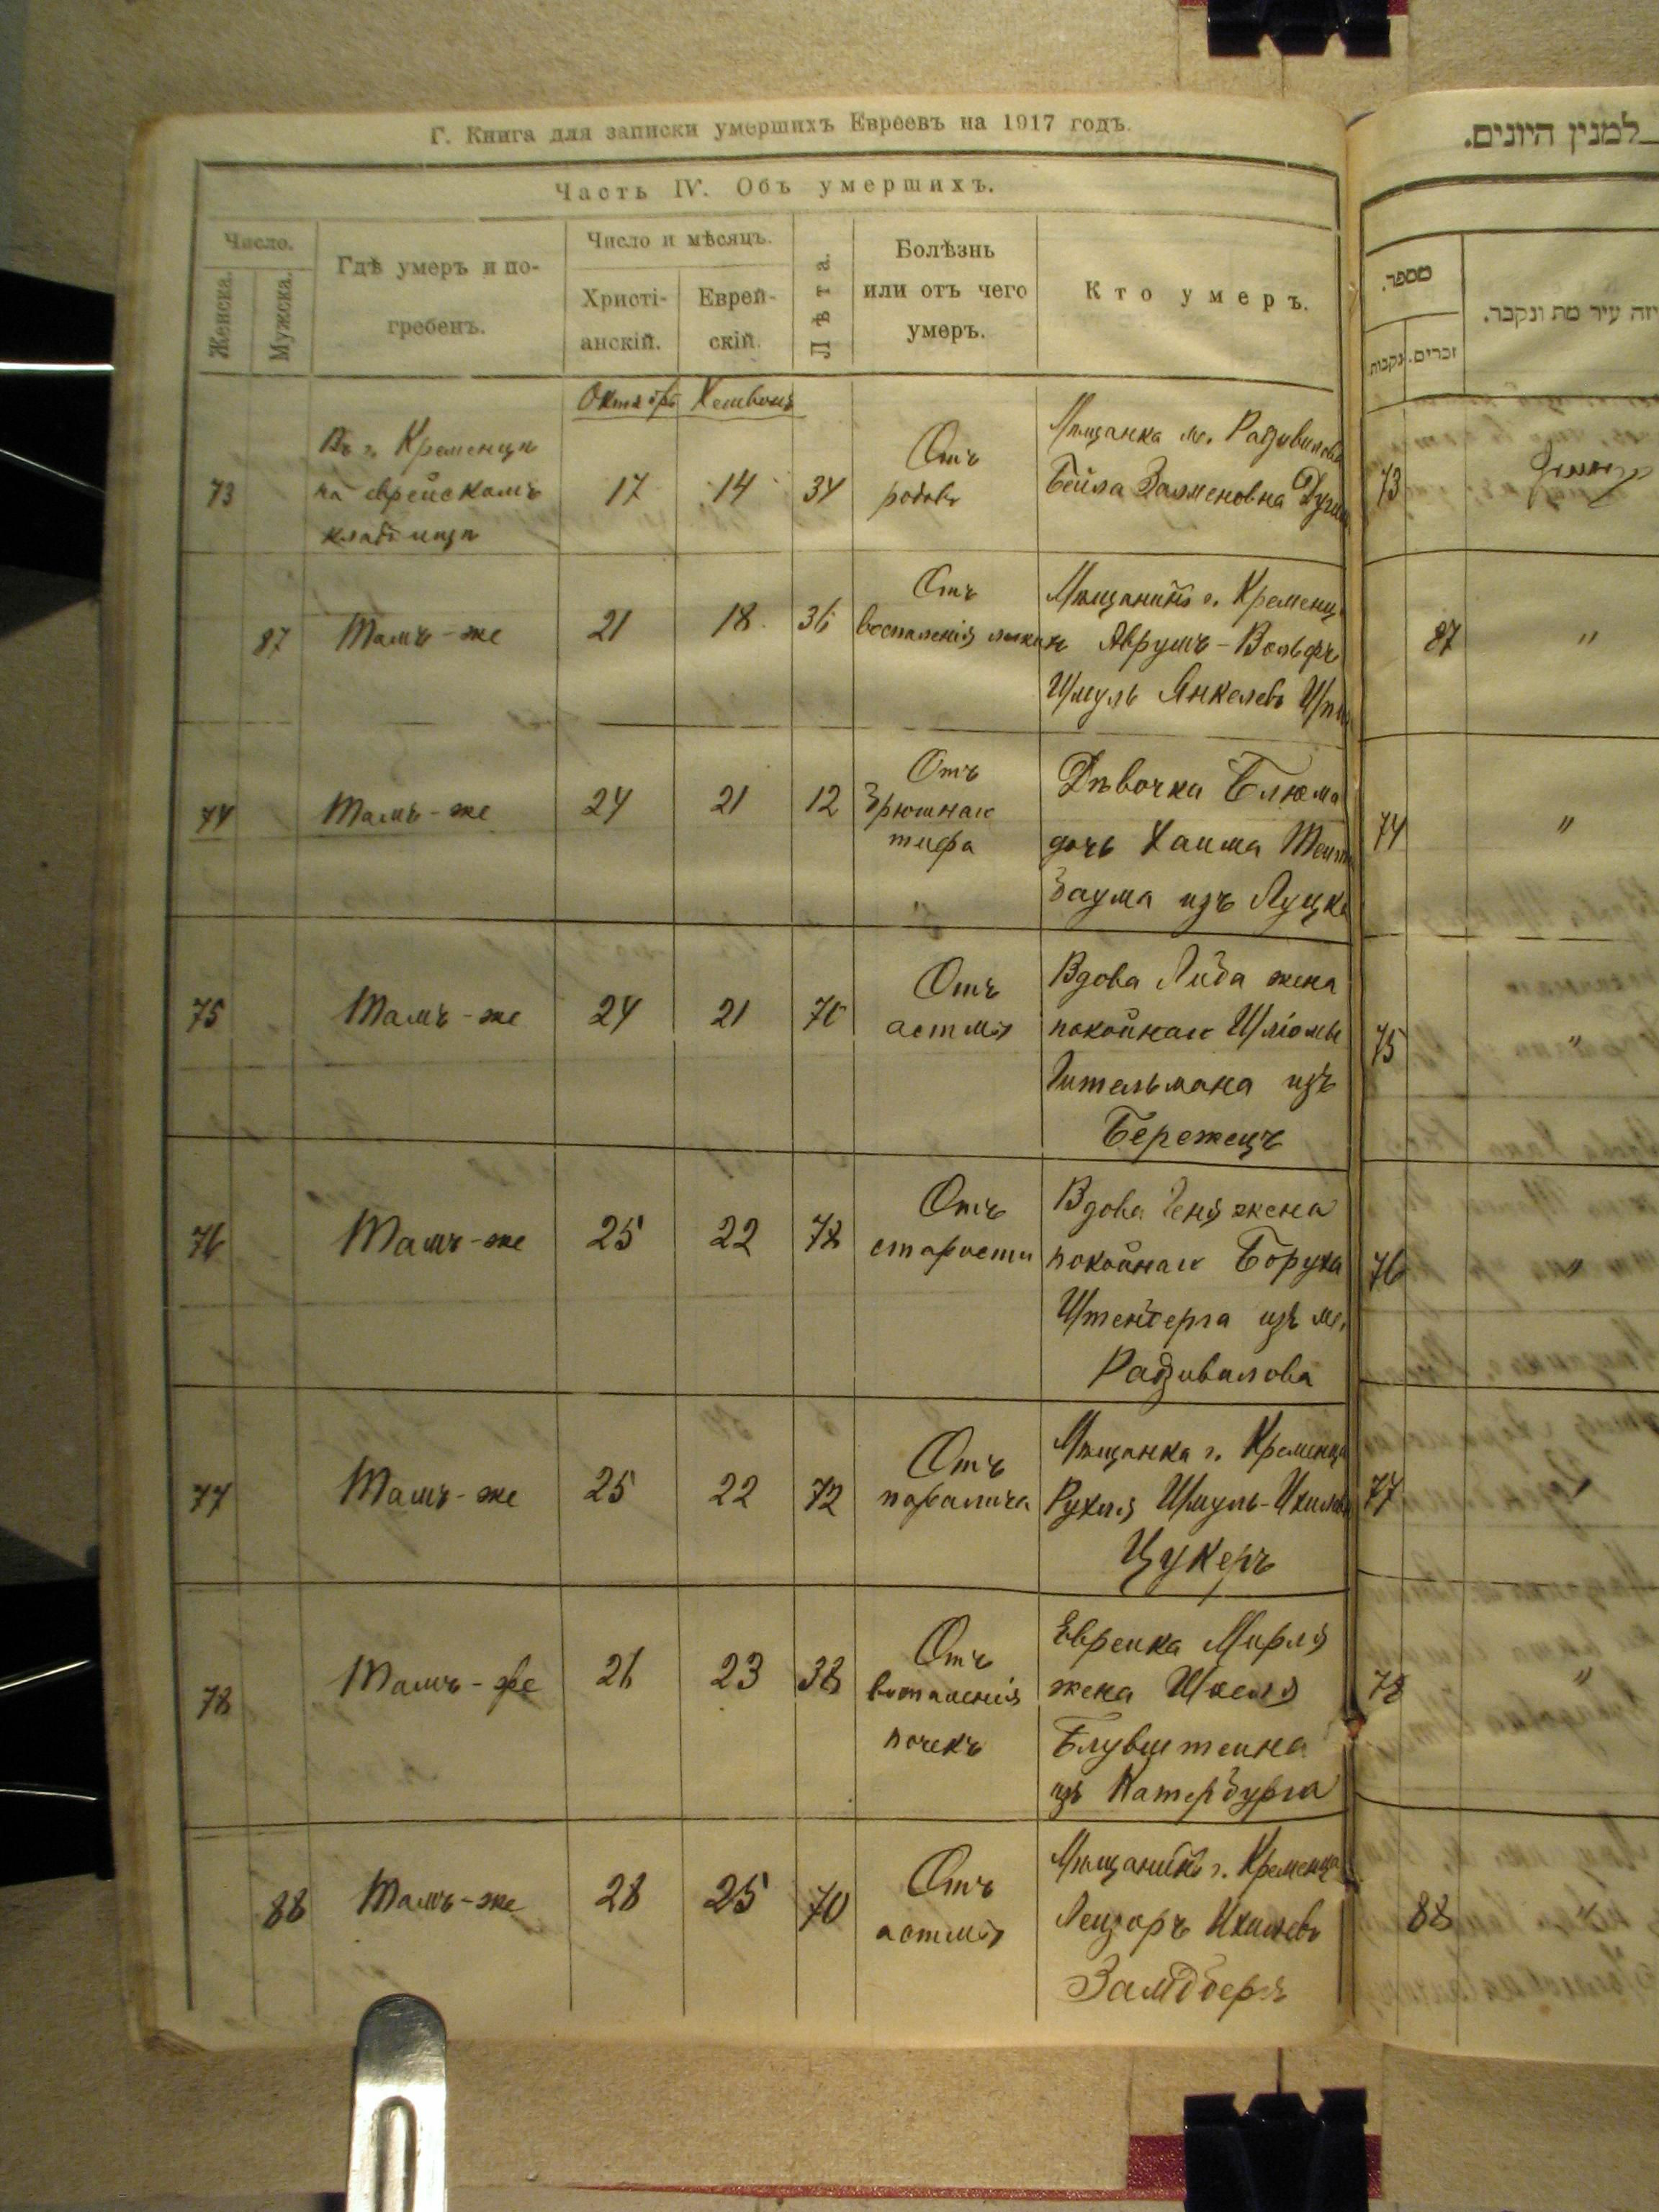 Г. Книга для записки умершихъ Евреевъ на 1917 годъ.
Часть IV. Объ умершихъ.
Число.
Женска.
Мужска.
Гдѣ умеръ и по-
гребенъ.
Число и мѣсяцъ.
Христі-
анскій.
Еврей-
скій.
Лѣта.
Болѣзнь
или отъ чего
умеръ.
Кто умеръ.
Октябрь Хешвонъ
73
Въ г. Кременцѣ
на еврейскомъ
кладбищѣ
17
14
34
Отъ
родовъ
Мѣщанка м. Радзивилова
Бейла Залменовна
87
Тамъ-же
21
18
36
Отъ
воспаленія
Мѣщанинъ г. Кременца
Аврумъ-Вольфъ
Шмуль Янкелевъ
74
Тамъ-же
24
21
12
Отъ
брюшнаго
тифа
Дѣвочка Блюма
дочь Хаима
баума изъ Луцка
75
Тамъ-же
24
21
70
Отъ
астмы
Вдова Либа жена
покойнаго Шліомы
Гительмана изъ
Бережецъ
76
Тамъ-же
25
22
78
Отъ
старости
Вдова Геня жена
покойнаго Боруха
Штенберга изъ м.
Радзивилова
77
Тамъ-же
25
22
72
Отъ
паралича
Мѣщанка г. Кременца
Рухля Шмуль-
Цукеръ
78
Тамъ-же
26
23
38
Отъ
воспаленія
почекъ
Еврейка Мирля
жена
Блувштейна
изъ Катербурга
88
Тамъ-же
28
25
70
Отъ
астмы
Мѣщанинъ г. Кременца
Лейзоръ Ихилевъ
למנין היונים.
מספר.
נקבות.
זכרים.
איזה עיר מת ונקבר.
73
87 "
74 "
75 "
76 "
77
78 "
88 "